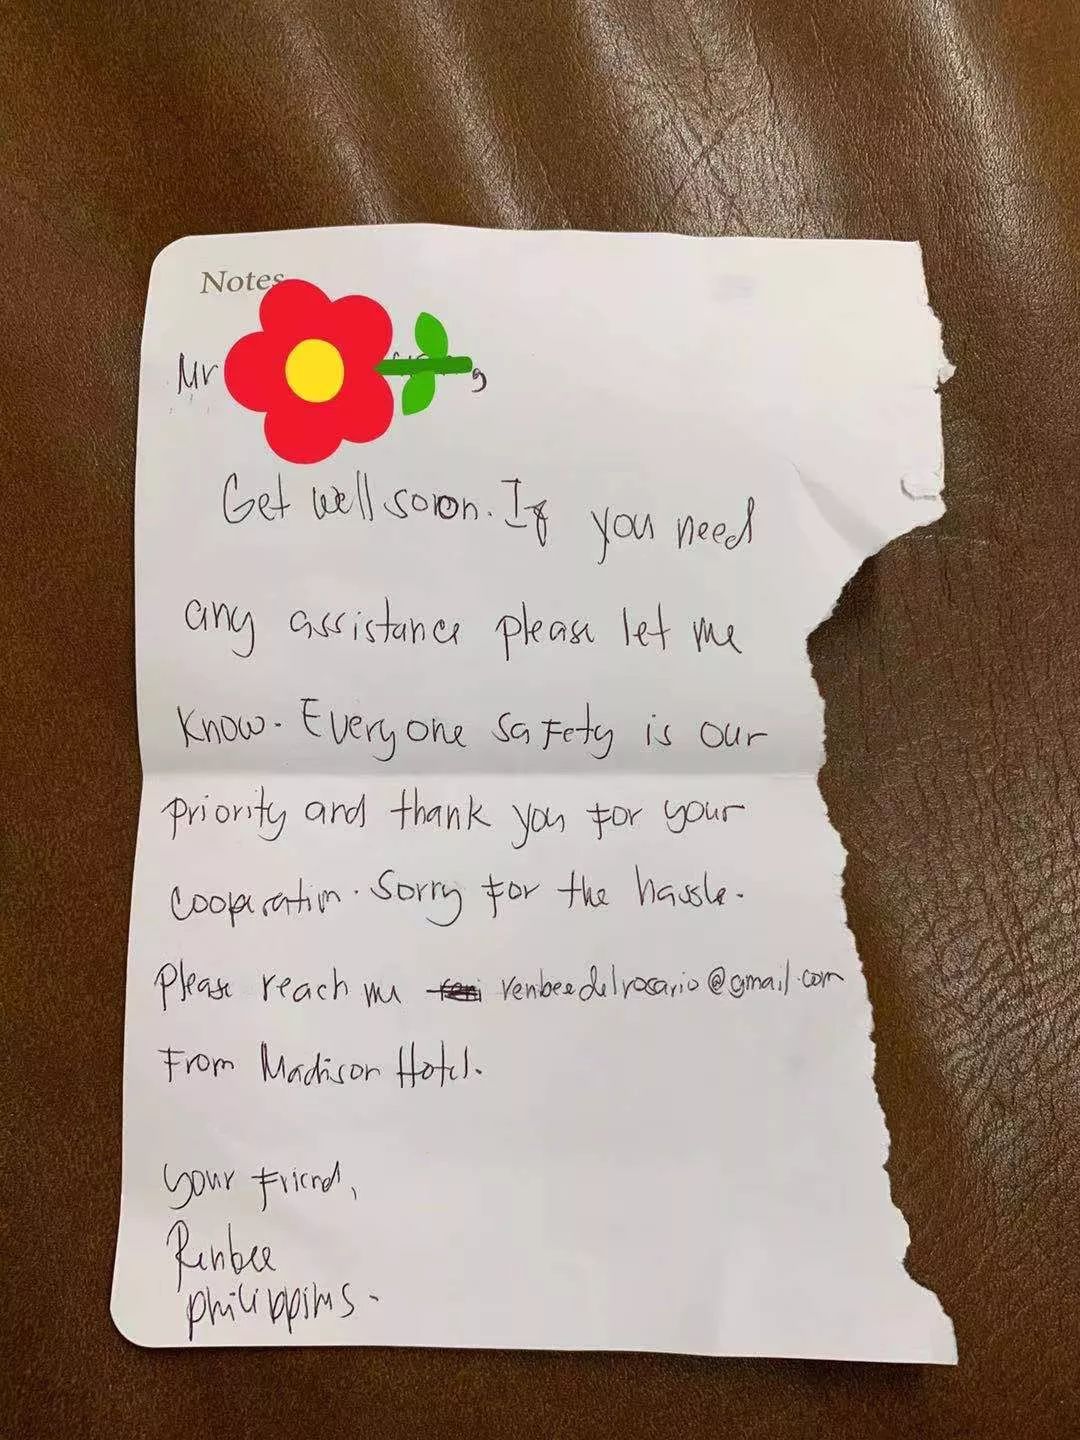 Notes
Mr ,
Get well soon. If you need
any assistance please let me
know. Everyone safety is our
priority and thank you for your
cooperation. Sorry for the hassle.
Please reach me renbeedelrosario@gmail.com
From Madison Hotel.
your friend,
Renbee
philippines.